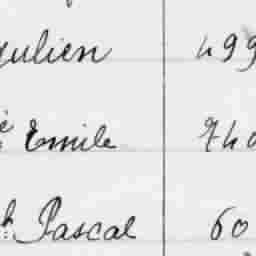 Julien 499
é Emile 740
h Pascal 60